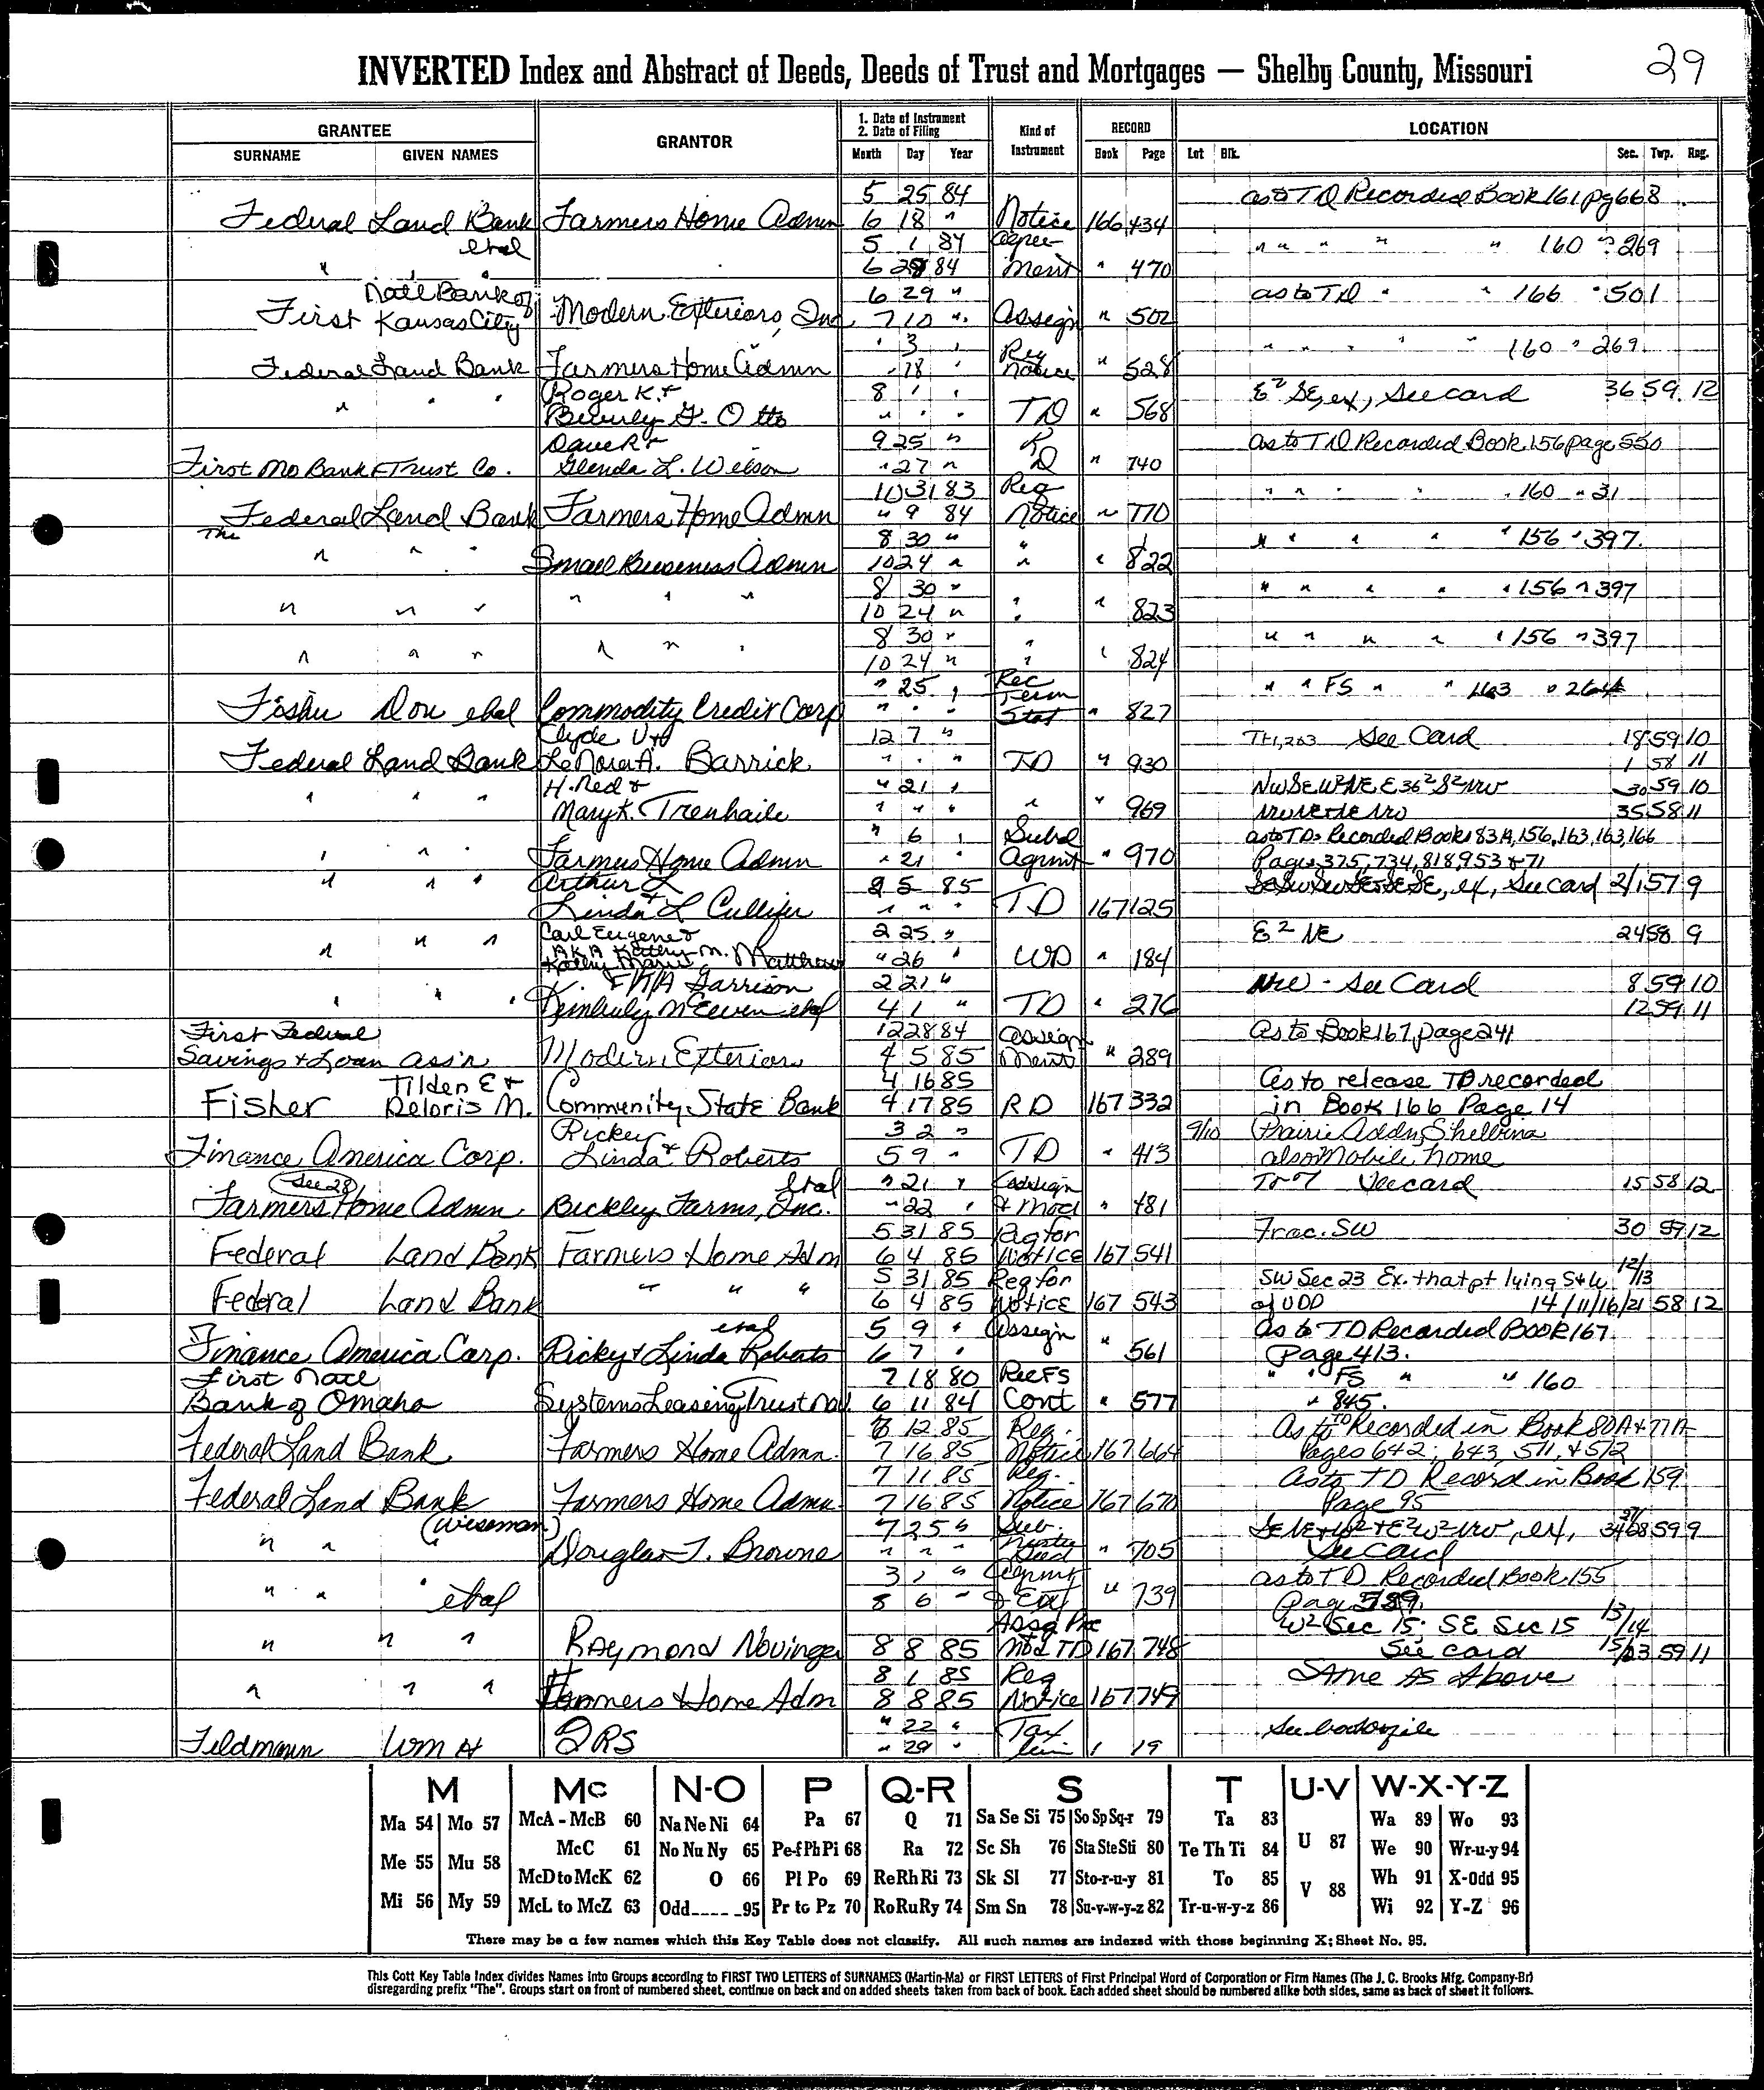 29
INVERTED Index and Abstract of Deeds, Deeds of Trust and Mortgages — Shelby County, Missouri
GRANTEE GRANTOR 1. Date of Instrument 2. Date of Filing Kind of Instrument RECORD LOCATION
SURNAME GIVEN NAMES Month Day Year Book Page Lot Blk. Sec. Twp. Rng.
5 25 84 as to TD Recorded Book 161 pg 668
Federal Land Bank Farmers Home Admn 6 18 " Notice 166 434
etal 5 1 84 Agree " " " " " 160 " 269
" " " 6 28 84 ment " 470
Natl Bank of 6 29 " as to TD " " 166 " 501
First Kansas City Modern Exteriors, Inc 7 10 " Assign " 502
" 3 " Req " " " " " 160 " 269
Federal Land Bank Farmers Home Admn " 18 " Notice " 528
Roger K. + 8 1 " E2 SE, ex, See card 36 59 12
" " " Beverly G. Otto " " " TD " 568
Dave R + 9 25 " R as to TD Recorded Book 156 page 550
First Mo Bank & Trust Co. Glenda L. Wilson " 27 " D " 740
10 31 83 Req " " " " 160 " 31
The Federal Land Bank Farmers Home Admn " 9 84 Notice " 770
8 30 " " " " " " " 156 " 397
" " " Small Business Admn 10 24 " " " 822
8 30 " " " " " " " 156 " 397
" " " " " " 10 24 " " " 823
8 30 " " " " " " " 156 " 397
" " " " " " 10 24 " " " 824
" 25 " Rec " " FS " " 163 " 264
Fisher Don etal Commodity Credit Corp " " " Term Stat " 827
Clyde V + 12 7 " See Card 18 59 10
Federal Land Bank LeNora A. Barrick " " " TD " 930 1 58 11
H. Red + " 21 " NWSE W2NE E 36 2 S2NW 30 59 10
" " " Mary K. Trenhaile " " " " " 969 35 58 11
" 6 " Subd as to TDs Recorded Books 83A, 156, 163, 163, 166
" " " Farmers Home Admn " 21 " Agrmt " 970 Pages 375, 734, 818, 953 + 71
" " " Arthur L + 2 5 85 ex, See card 2/1 57 9
Linda L Cullifer " " " TD 167 125
Carl Eugene + 2 25 " E2 NE 24 58 9
" " " AKA Kathy M. Kathy Marie Matthews " 26 " WD " 184
F/K/A Garrison 2 21 " NW - See Card 8 59 10
" " " Kimberly McEwen etal 4 1 " TD " 276 12 59 11
First Federal 12 28 84 Assign As to Book 167, page 241
Savings + Loan Ass'n Modern Exteriors 4 5 85 ment " 289
Tilden E + 4 16 85 As to release TD recorded
Fisher Deloris M. Community State Bank 4 17 85 RD 167 332 in Book 166 Page 14
Rickey 3 2 " 9/10 Prairie Addn, Shelbina
Finance America Corp. Linda + Roberts 5 9 " TD " 413 also Mobile home
(See 28) etal " 21 " Assign See card 15 58 12
Farmers Home Admn. Bickley Farms, Inc. " 22 " + Mod " 481
5 31 85 Req for Frac. SW 30 57 12
Federal Land Bank Farmers Home Adm 6 4 85 Notice 167 541
5 31 85 Req for SW Sec 23 Ex. that pt lying S + W 12/13
Federal Land Bank " " " 6 4 85 Notice 167 543 of UDD 14/11/16/21 58 12
etal 5 9 " Assign As to TD Recorded Book 167
Finance America Corp. Ricky + Linda Roberts 6 7 " " 561 Page 413.
First Natl 7 18 80 Rec FS " " FS " " 160
Bank of Omaha Systems Leasing Trust Nat. 6 11 84 Cont " 577 " 845.
6 12 85 Req. As to TD Recorded in Book 80A + 77A
Federal Land Bank Farmers Home Admn. 7 16 85 Notice 167 664 Pages 642, 643, 511, + 512
7 11 85 Req. As to TD Record in Book 159
Federal Land Bank Farmers Home Admn. 7 16 85 Notice 167 670 Page 95
(Wiseman) 7 25 " Sub. SE NE + W2 + E2 W2 NW, ex, 59 9
" " " Douglas T. Browne " " " Trustee Deed " 705 See Card
3 1 " Agrmt as to TD Recorded Book 155
" " " etal 8 6 " + Ext " 739 Page 589.
Assg Pre W2 Sec 15 SE Sec 15 13/14
" " " Raymond Novinger 8 8 85 Mod TD 167 748 See card 15/23 59 11
8 1 85 Req Same As Above
" " " Farmers Home Adm 8 8 85 Notice 167 749
" 22 " Tax
Feldmann Wm H IRS " 29 " Lien 1 19
M Mc N-O P Q-R S T U-V W-X-Y-Z
Ma 54 Mo 57 McA - McB 60 Na Ne Ni 64 Pa 67 Q 71 Sa Se Si 75 So Sp Sq-r 79 Ta 83 U 87 Wa 89 Wo 93
Me 55 Mu 58 McC 61 No Nu Ny 65 Pe-f Ph Pi 68 Ra 72 Sc Sh 76 Sta Ste Sti 80 Te Th Ti 84 We 90 Wr-u-y 94
McD to McK 62 O 66 Pl Po 69 Re Rh Ri 73 Sk Sl 77 Sto-r-u-y 81 To 85 V 88 Wh 91 X-Odd 95
Mi 56 My 59 McL to McZ 63 Odd---- -95 Pr to Pz 70 Ro Ru Ry 74 Sm Sn 78 Su-v-w-y-z 82 Tr-u-w-y-z 86 Wi 92 Y-Z 96
There may be a few names which this Key Table does not classify. All such names are indexed with those beginning X; Sheet No. 95.
This Cott Key Table Index divides Names into Groups according to FIRST TWO LETTERS of SURNAMES (Martin-Ma) or FIRST LETTERS of First Principal Word of Corporation or Firm Names (The J. C. Brooks Mfg. Company-Br)
disregarding prefix "The". Groups start on front of numbered sheet, continue on back and on added sheets taken from back of book. Each added sheet should be numbered alike both sides, same as back of sheet it follows.